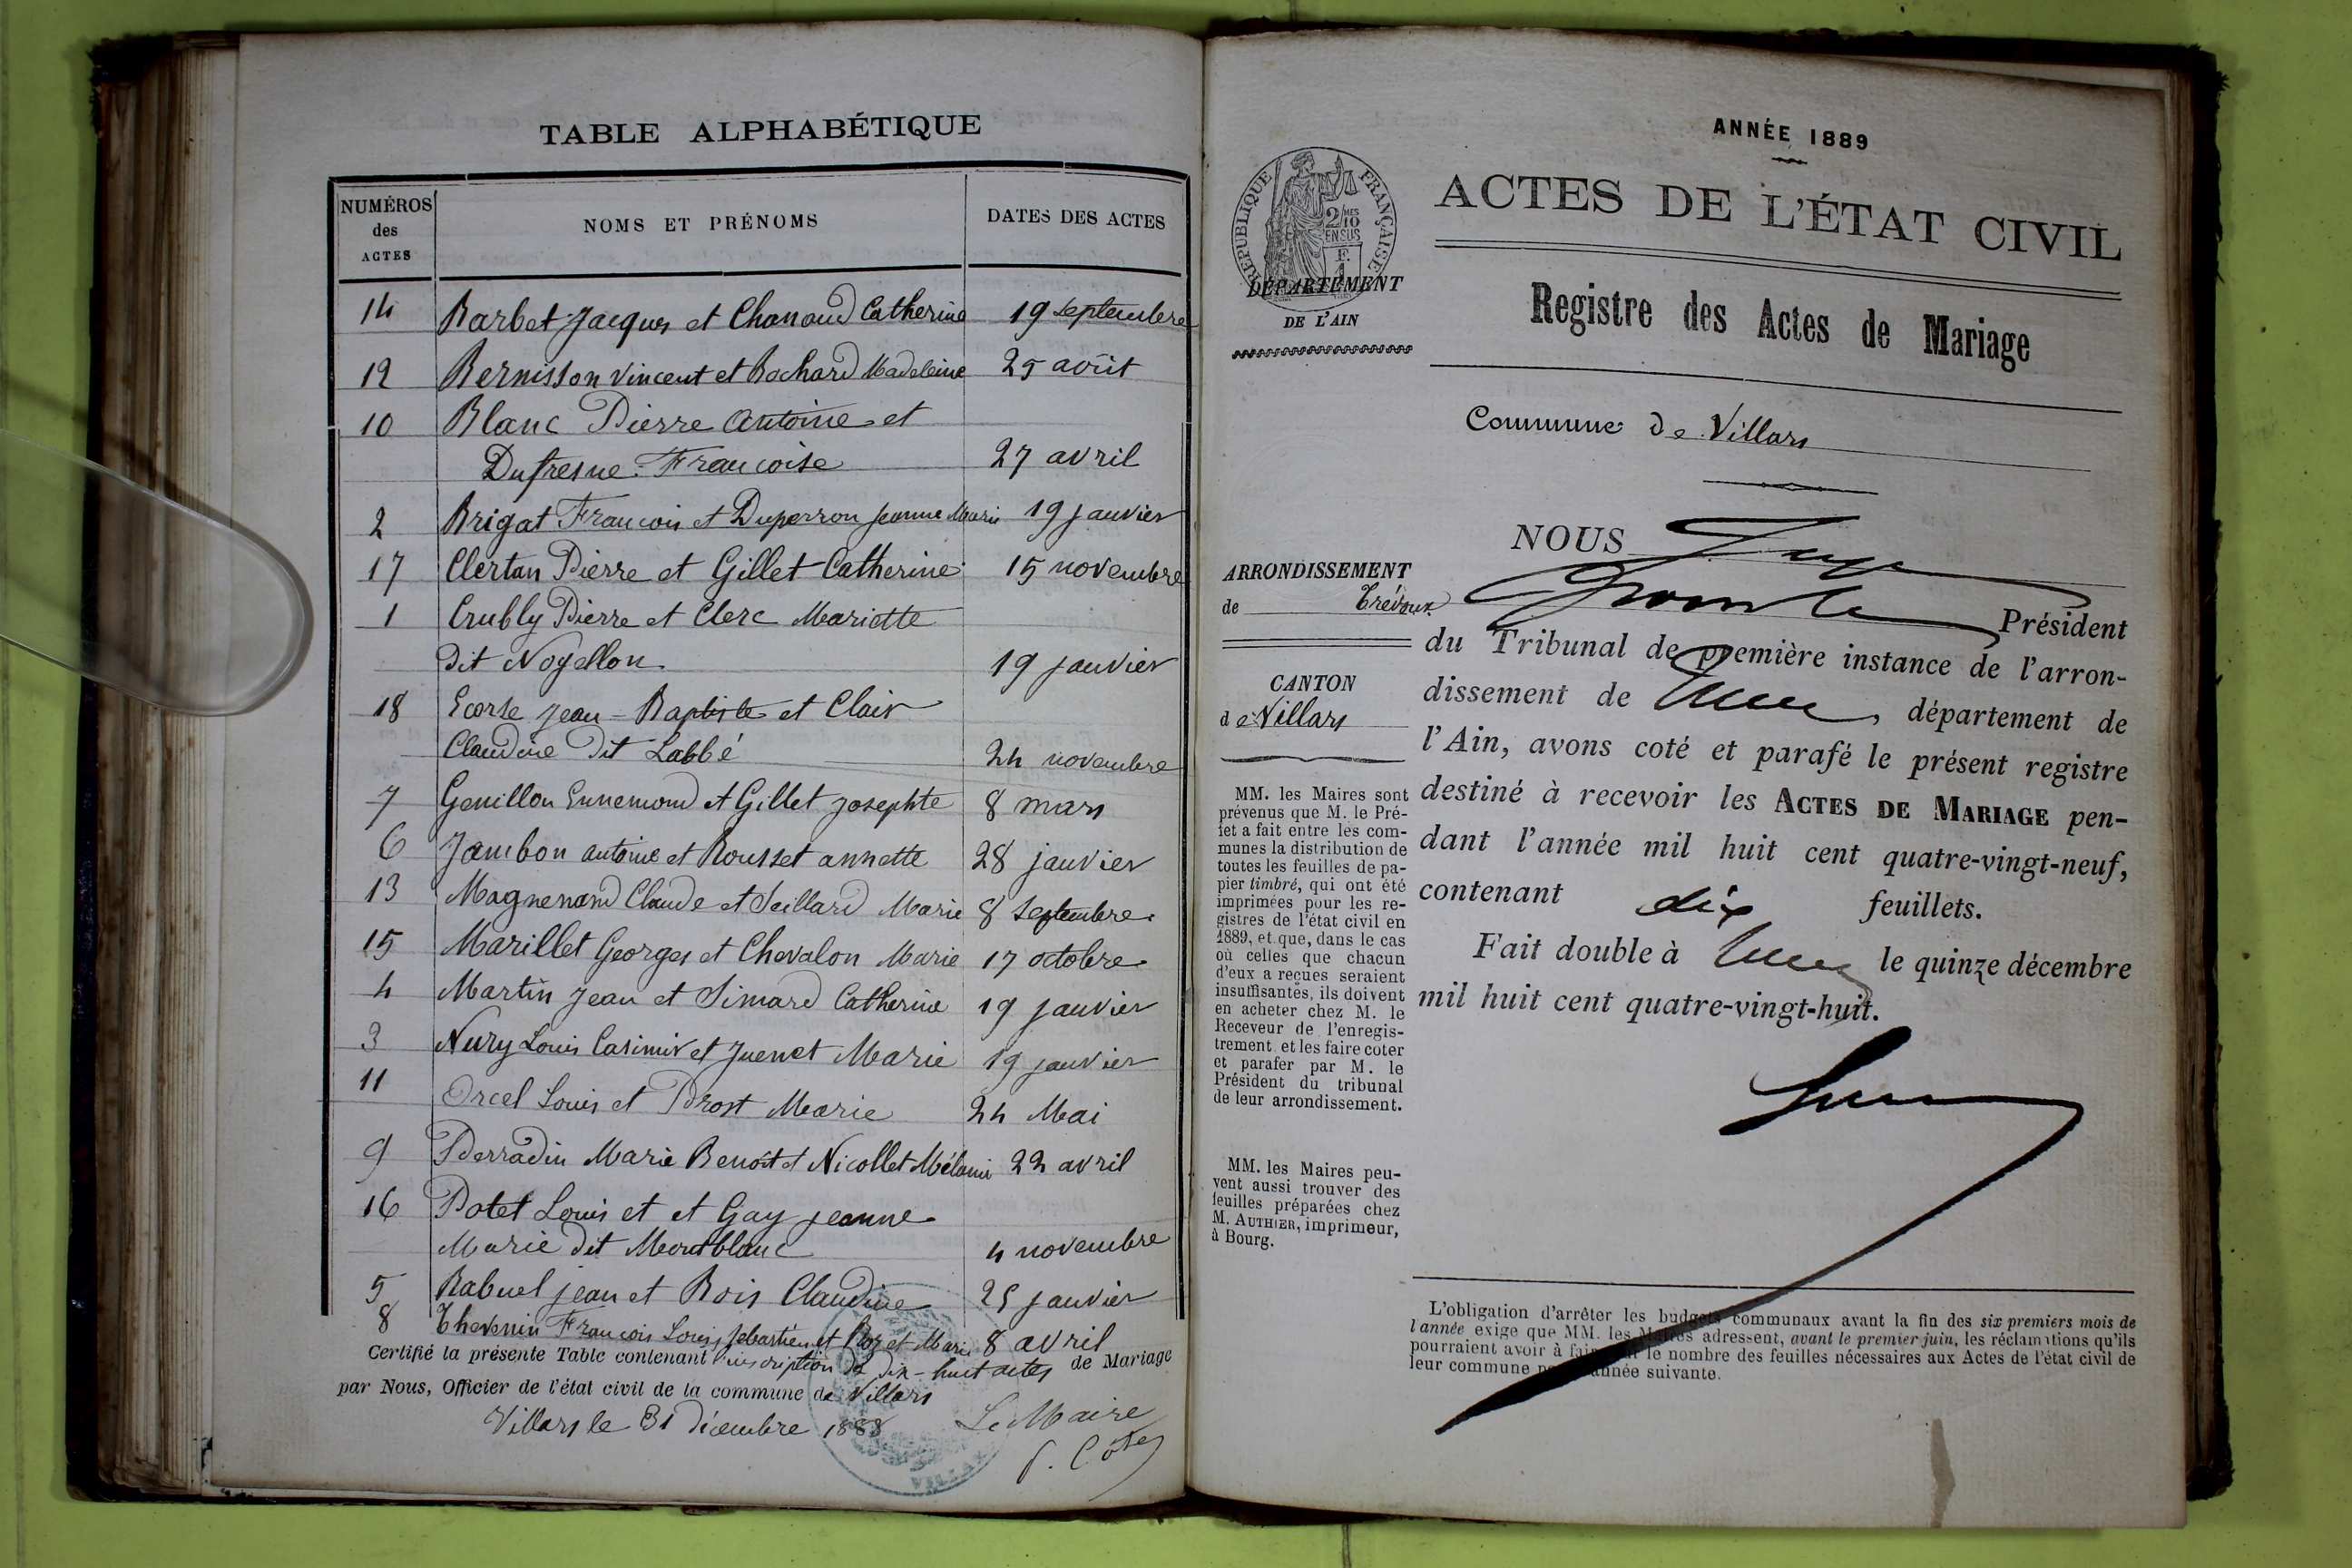 TABLE ALPHABÉTIQUE
NUMÉROS des ACTES
NOMS ET PRÉNOMS
DATES DES ACTES
14 Barbet Jacques et Chanaud Catherine 19 septembre
12 Bernisson Vincent et Bochard Madeleine 25 août
10 Blanc Pierre Antoine et
Dufresne Françoise 27 avril
2 Brigat François et Duperron Jeanne Marie 19 janvier
17 Clertan Pierre et Gillet Catherine 15 novembre
1 Crubly Pierre et Clerc Mariette
dit Noyellon 19 janvier
18 Ecorse Jean-Baptiste et Clair
Claudine dit Labbé 24 novembre
7 Genillon Ennemond et Gillet Josephte 8 mars
6 Jambon antoine et Rousset annette 28 janvier
13 Magnenand Claude et Seillard Marie 8 septembre
15 Marillet Georges et Chevalon Marie 17 octobre
4 Martin Jean et Simard Catherine 19 janvier
3 Nury Louis Casimir et Juenet Marie 19 janvier
11 Orcel Louis et Prost Marie 24 Mai
9 Perradin Marie Benoît et Nicollet Mélanie 22 avril
16 Potet Louis et et Gay Jeanne
Marie dit Montblanc 4 novembre
5 Rabuel Jean et Bois Claudine 25 janvier
8 Thevenin François Louis Sebastien et Marie 8 avril
Certifié la présente Table contenant inscription de dix-huit actes de Mariage
par Nous, Officier de l'état civil de la commune de Villars
Villars le 31 décembre 1888
Le Maire
ANNÉE 1889
RÉPUBLIQUE FRANÇAISE
2/10MES
EN SUS
F.
1
ACTES DE L'ÉTAT CIVIL
DÉPARTEMENT
DE L'AIN
Registre des Actes de Mariage
Commune de Villars
ARRONDISSEMENT
de Trévoux
CANTON
de Villars
MM. les Maires sont
prévenus que M. le Pré-
fet a fait entre les com-
munes la distribution de
toutes les feuilles de pa-
pier timbré, qui ont été
imprimées pour les re-
gistres de l'état civil en
1889, et que, dans le cas
où celles que chacun
d'eux a reçues seraient
insuffisantes, ils doivent
en acheter chez M. le
Receveur de l'enregis-
trement et les faire coter
et parafer par M. le
Président du tribunal
de leur arrondissement.
MM. les Maires peu-
vent aussi trouver des
feuilles préparées chez
M. AUTHIER, imprimeur,
à Bourg.
NOUS
Président
du Tribunal de première instance de l'arron-
dissement de , département de
l'Ain, avons coté et parafé le présent registre
destiné à recevoir les ACTES DE MARIAGE pen-
dant l'année mil huit cent quatre-vingt-neuf,
contenant dix feuillets.
Fait double à le quinze décembre
mil huit cent quatre-vingt-huit.
L'obligation d'arrêter les budgets communaux avant la fin des six premiers mois de
l'année exige que MM. les Maires adressent, avant le premier juin, les réclamations qu'ils
pourraient avoir à faire le nombre des feuilles nécessaires aux Actes de l'état civil de
leur commune année suivante.